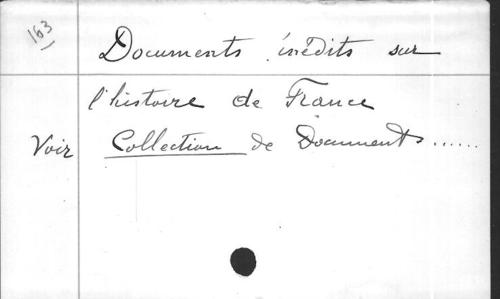 163
Documents inédits sur
l'histoire de France
Voir Collection de Documents......